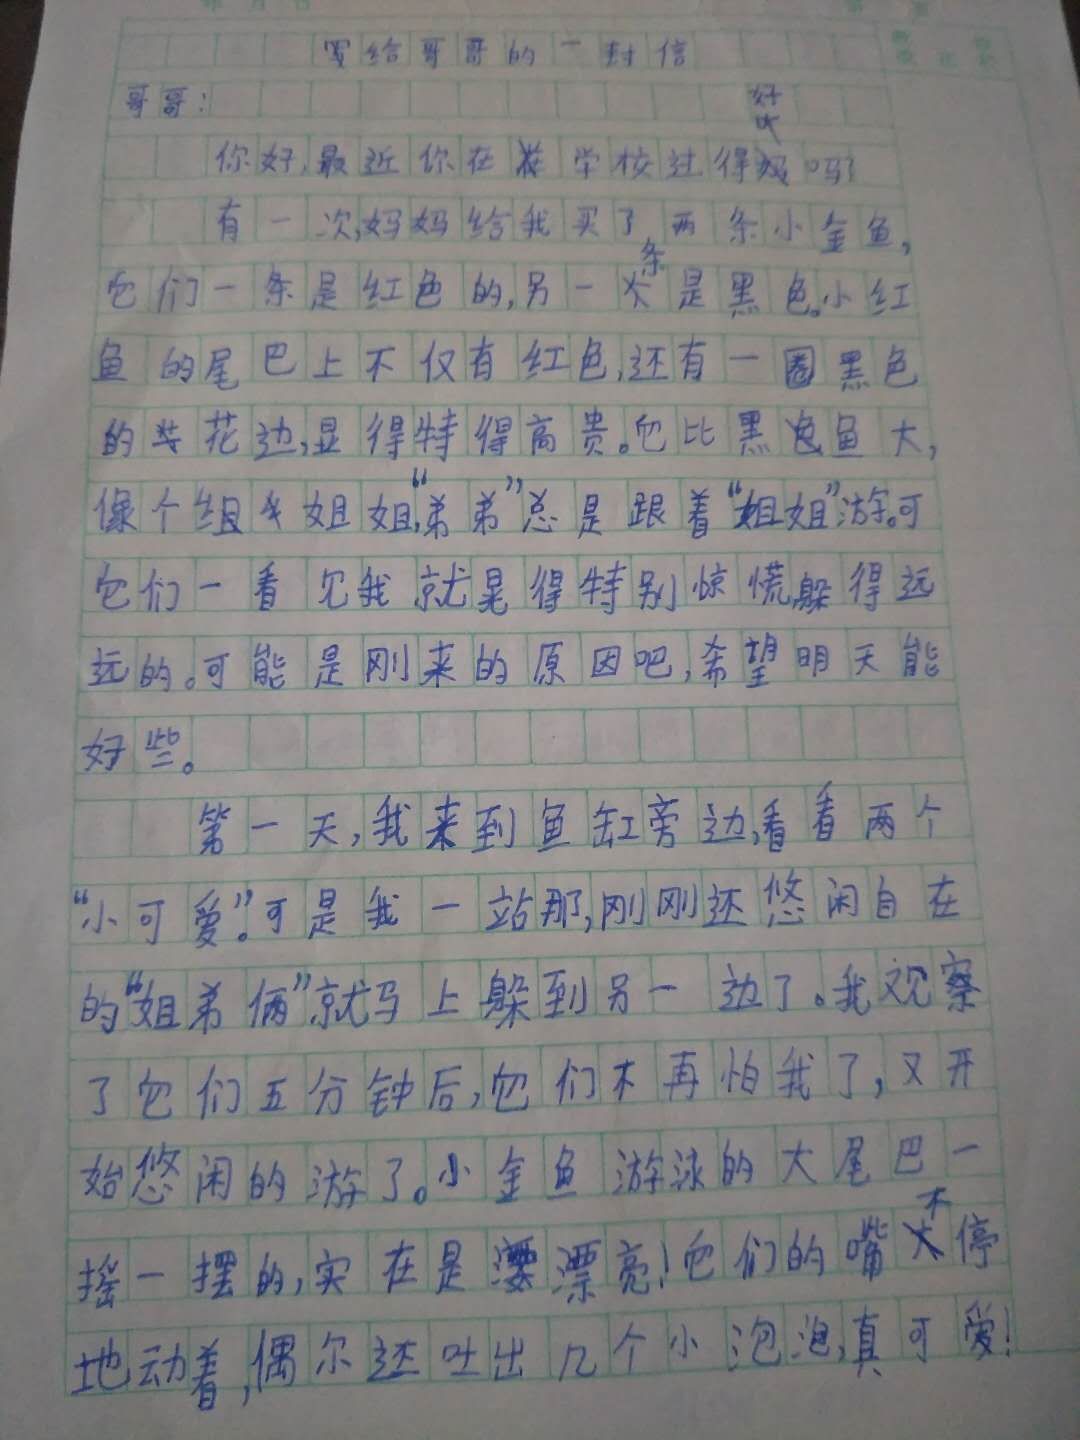 写给哥哥的一封信
哥哥:
你好,最近你在学校过得好吗?
有一次,妈妈给我买了两条小金鱼,
它们一条是红色的,另一条是黑色。小红
鱼的尾巴上不仅有红色,还有一圈黑色
的花边,显得特得高贵。它比黑色鱼大,
像个组姐姐,“弟弟”总是跟着“姐姐”游。可
它们一看见我就晃得特别惊慌躲得远
远的。可能是刚来的原因吧,希望明天能
好些。
第一天,我来到鱼缸旁边,看看两个
“小可爱”。可是我一站那,刚刚还悠闲自在
的“姐弟俩”就马上躲到另一边了。我观察
了它们五分钟后,它们不再怕我了,又开
始悠闲的游了。小金鱼游泳的大尾巴一
摇一摆的,实在是漂亮!它们的嘴不停
地动着,偶尔还吐出几个小泡泡,真可爱!